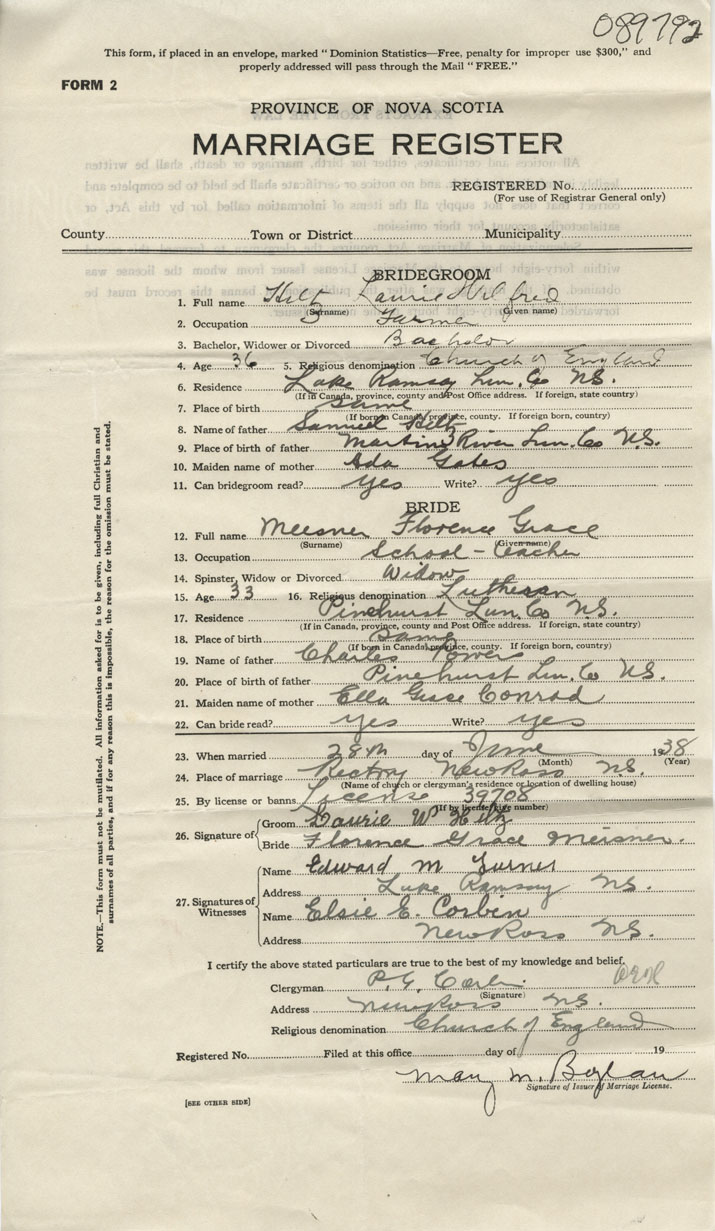 089792
This form, if placed in an envelope, marked "Dominion Statistics—Free, penalty for improper use $300," and
properly addressed will pass through the Mail "FREE."
FORM 2
PROVINCE OF NOVA SCOTIA
MARRIAGE REGISTER
REGISTERED No.
(For use of Registrar General only)
County Town or District Municipality
BRIDEGROOM
1. Full name Hiltz Laurie Wilfred
(Surname) (Given name)
2. Occupation Farmer
3. Bachelor, Widower or Divorced Bachelor
4. Age 36 5. Religious denomination Church of England
6. Residence Lake Ramsay Lun. Co N.S.
(If in Canada, province, county and Post Office address. If foreign, state country)
7. Place of birth same
(If born in Canada, province, county. If foreign born, country)
8. Name of father Samuel Hiltz
9. Place of birth of father Martins River Lun. Co N.S.
10. Maiden name of mother Ada Gates
11. Can bridegroom read? yes Write? yes
BRIDE
12. Full name Meisner Florence Grace
(Surname) (Given name)
13. Occupation School-teacher
14. Spinster, Widow or Divorced Widow
15. Age 33 16. Religious denomination Lutheran
17. Residence Pinehurst Lun. Co N.S.
(If in Canada, province, county and Post Office address. If foreign, state country)
18. Place of birth same
(If born in Canada, province, county. If foreign born, country)
19. Name of father Charles
20. Place of birth of father Pinehurst Lun. Co N.S.
21. Maiden name of mother Ella Grace Conrad
22. Can bride read? yes Write? yes
23. When married 28th day of June 1938
(Month) (Year)
24. Place of marriage Rectory New Ross N.S.
(Name of church or clergyman's residence or location of dwelling house)
25. By license or banns License 39708
(If by license give number)
26. Signature of Groom Laurie W Hiltz
Bride Florence Grace Meisner.
27. Signatures of Witnesses Name Edward M Turner
Address Lake Ramsay N.S.
Name Elsie E. Corbin
Address New Ross N.S.
I certify the above stated particulars are true to the best of my knowledge and belief.
Clergyman Corbin
(Signature)
Address New Ross N.S.
Religious denomination Church of England
Registered No. Filed at this office day of 19
Mary M. Boylan
Signature of Issuer of Marriage License.
[SEE OTHER SIDE]
NOTE.—This form must not be mutilated. All information asked for is to be given, including full Christian and
surnames of all parties, and if for any reason this is impossible, the reason for the omission must be stated.